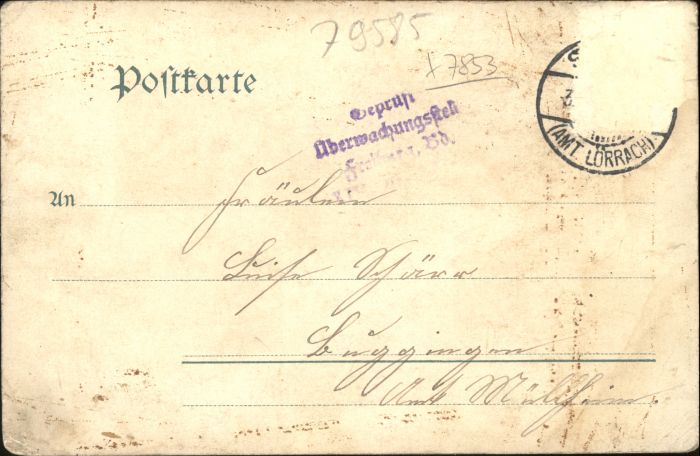 79585
7853
Postkarte
Geprüft
Überwachungsstelle
Freiburg i. Bd.
(AMT LÖRRACH)
An
Fräulein
Luise Schärr
Buggingen
Amt Müllheim.